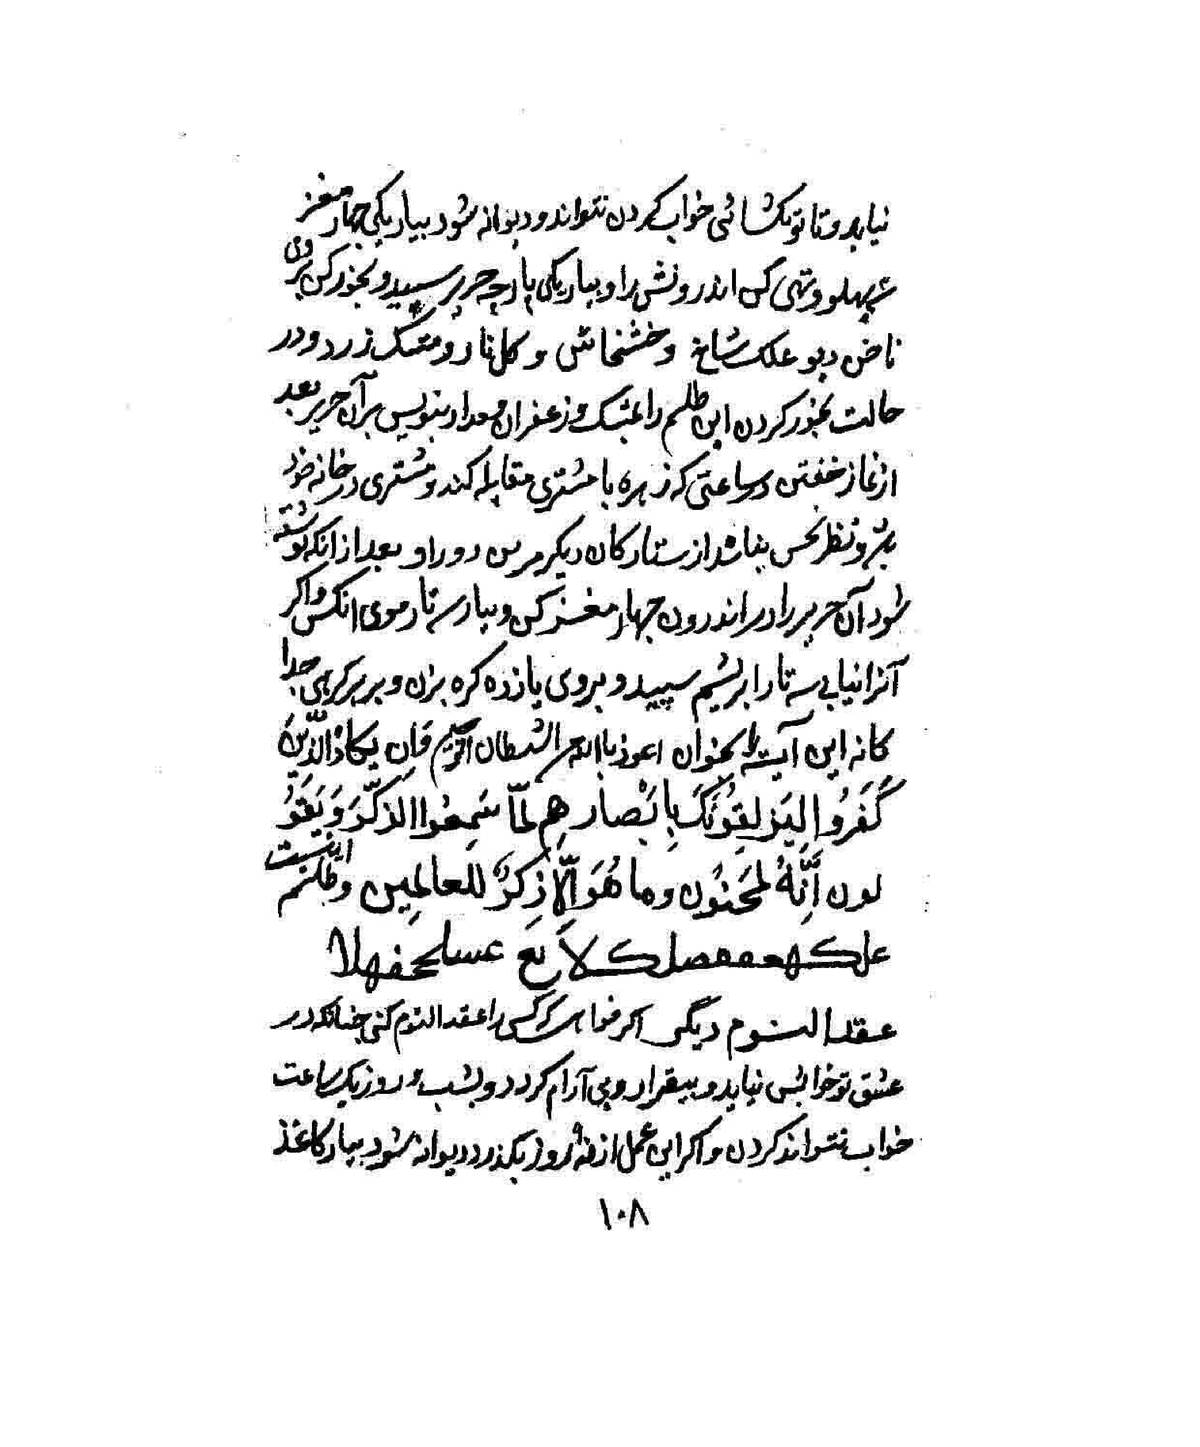 نیاید و تا تو نکشائی خواب کردن نتواند و دیوانه شود بیار یکی چهار مغز
پهلو و تهی کن اندرونش را و بیار یکی پارچه حریر سپید و بخور کن بر وی
ناخن دیو علک شاخ و خشخاش و کل نار و مشک زرد و در
حالت بخور کردن این طلسم را بمشک و زعفران و مداد بنویس بر آن حریر بعد
از نماز خفتن در ساعتی که زهره با مشتری مقابله کند و مشتری در خانه خود
بود و نظر نحس نباشد از ستارکان دیکر مرین دو را و بعد از انکه نوشته
شود آن حریر را در اندرون چهار مغز کن و بیار سه تار موی انکس و اکر
آنرا نیابی سه تار ابریشم سپید و بروی یازده کره بزن و بر هر کرهی جدا
کانه این آیت را بخوان اعوذ بالله من الشیطان الرجیم وَاِن یکادُ الَّذینَ
کَفَرُوا لَیَزلِقُونَکَ بِاَبْصارِهِم لَمّا سَمِعُوا الذِّکرَ وَ یَقُو
لون اِنَّهُ لَمَجنُون وما هُوَ اِلّا ذِکرٌ لِلعالَمِین و طلسم اینست
عقد النوم دیکر اکر خواهی که کسی را عقد النوم کنی چنانکه در
عشق تو خوابش نیاید و بیقرار و بی آرام کردد و بشب و روز یکساعت
خواب نتواند کردن و اکر این عمل از نه روز بکذرد دیوانه شود بیار کاغذ
١٠٨